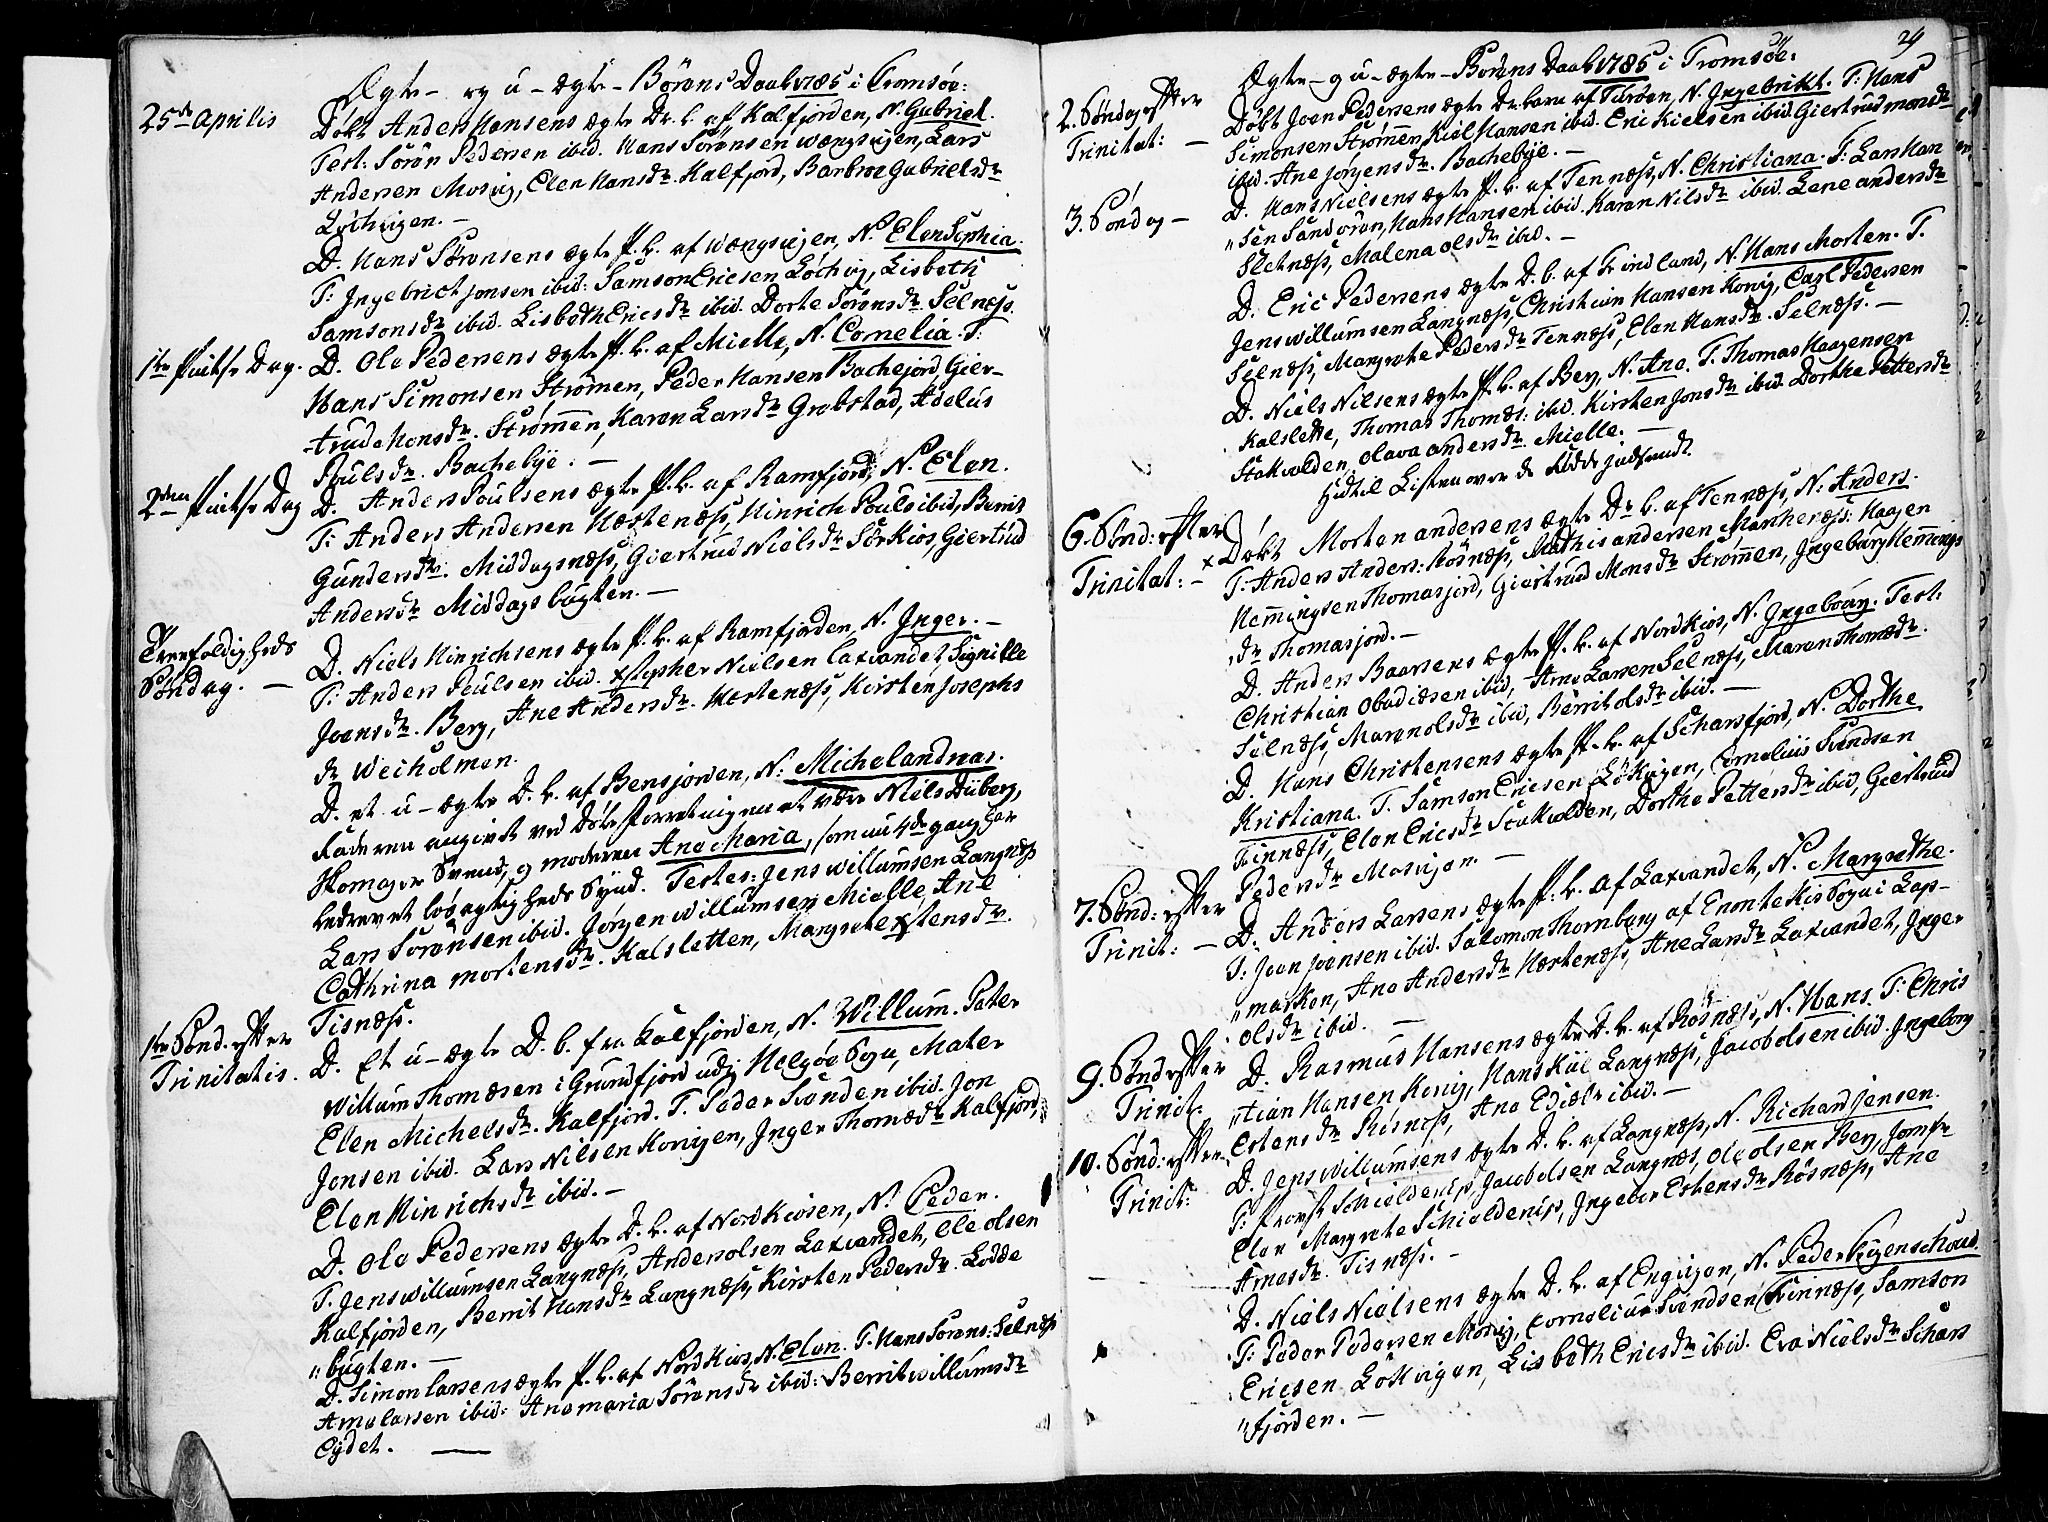 Ægte- og u-ægte-Börens Daab 1785 i Tromsöe:
25de Aprilis
Döbt Anders Hansens ægte Dr. b. af Kalfjorden, N. Gabriel.
Test: Sörön Pedersen ibid. Hans Sörensen wængsøjen, Lars
Andersen Mosvig, Elen Hansdr. Kalfjord, Barbroe Gabrielsdr
Løchvigen.-
D. Hans Sörensens ægte P. b. af wængsøjen, N. Elen Sophia.
T: Ingebrict jonsen ibid: Samson Ericsen Løchvig, Lisbeth
Samsonsdr ibid. Lisbeth Ericsdr ibid. Dorte Sörensdr Selnæss.
1te Pintse Dag.
D. Ole Pedersens ægte P. b. af Mielle, N. Cornelia. T:
Hans Simonsen Strømen, Peder Hansen Bachejord, Gier-
-trude Monsdr. Strømmen, Karen Larsdr Grøbstad, Adelus
Poulsdr. Bachebye.-
2den Pintse Dag
D. Anders Poulsens ægte P. b. af Ramfjord, N. Elen.
T: Anders Andersen Hæstenæss, Hinrich Pouls ibid, Berrit
Gundersdr. Middagsnæss, Giertrud Nielsdr Sörkios, Giertrud
Andersdr Middagsbugten.-
Treefoldigheds
Søndag.-
D. Niels Hinrichsens ægte P. b. af Ramfjorden, N. Inger.-
T: Anders Poulsen ibid. xstopher Nielsen Laxvandet, Signille
Joensdr. Berg, Ane Andersdr. Hæstenæss, Kirsten Josephs
dr Weiholmen.
D. et u-ægte D. b. af Bensjorden, N: Michel andreas.
Faderen angivet ved døbeforretningen at være Niels Duberg,
Skomager Svend, og moderen Ana Maria, som nu 4de gang har
bedrevet løsagtigheds Synd. Testes: Jens willumsen Langnæss
Lars Sörensen ibid. Jørgen willumsen Mielle, Ane
Cathrina mortensdr. Kalsletten, Margrete xstensdr.
Tisnæss.
1te Sönd. efter
Trinitatis.
D. Et u-ægte D. b. fra Kalfjorden, N. Willum. Pater
Willum Thomæsen i Grundfjord udj Helgöe Sogn, Mater
Elen Michelsdr. Kalfjord. T. Peder Svendsen ibid. Jon
Jonsen ibid. Lars Nilsen Kongjen, Inger Thomædr Kalfjord,
Elen Hinrichsdr ibid.-
D. Ole Pedersens ægte D. b. af Nordkiosen, N. Peder.
T. Jens willumsen Langnæss, Anders olsen Laxvandet, Ole olsen
Kalfjorden, Berrit Hansdr Langnæss, Kirsten Pedersdr. Lodde
"bugten.-
D. Simon Larsens ægte P. b. af Nordkios, N. Elen. T. Hans Sörens: Selnæss
Arne Larsen ibid: Ane maria Sörensdr ibid: Berrit willumsdr
Eydet.-
29
Ægte- og u-ægte-Börens Daab 1785 i Tromsöe:
2. Søndag efter
Trinitat:-
Döbt Joen Pedersens ægte Drbarn af Tusöen, N. Ingebrikt. T: Hans
Simonsen Strømmen, Kiel Hansen ibid. Eric Kielsen ibid. Giertrud monsdr
ibid. Ane Jörgensdr. Bachebye.-
3. Søndag-
D. Hans Nielsens ægte P. b. af Tennæss, N. Christiana. T: Lars Han
"sen Sandören, Hans Hansen ibid. Karen Nilsdr ibid. Lene andersdr
Sletnæss, Malena olsdr ibid.-
D. Eric Pedersens ægte D. b. af Findland, N. Hans Morten. T.
Jens willumsen Langnæss, Christian Hansen Konig, Carl Pedersen
Selnæss, Margrete Pedersdr Tennæss, Elen Hansdr. Selnæss.-
D. Niels Nilsens ægte P. b. af Berg, N. Ane. T. Thomas Haagensen
Kalslette, Thomas Thomæs: ibid. Kirsten Jonsdr ibid. Dorthe Pettersdr
Stakvolden, olava andersdr. Mielle.-
Hidtil Listen over de Fødde indsendt.
6. Sönd: efter
Trinitat:-
x Döbt Morten andersens ægte Dr b. af Tennæss, N: Anders.
T: Anders Anders: Rösnæss, Mathis andersen Mankenæss: Haagen
Hemmingsen Thomasjord, Giertrud Monsdr Strømmen, Ingeborg Hemmings
"dr Thomasjord.-
D. Anders Baarsens ægte P. b. af Nordkios, N. Ingeborg. Test:
Christian Obadiæsen ibid, Arne Larsen Selnæss, Maren Thomædr.
Selnæss, Maren olsdr ibid, Berrit olsdr ibid.-
D. Hans Christensens ægte P. b. af Scharsfjord, N. Dorthe
Kristiana. T. Samson Ericsen Lökvigen, Cornelius Svendsen
Finnæss, Elen Ericsdr Stakvolden, Dorthe Pettersdr ibid, Giertrud
Pedersdr Mosvigen.-
7. Sönd: efter
Trinit:-
D. Anders Larsens ægte P. b. af Laxvandet, N. Margrethe.
T: Joen joensen ibid. Salomon Thornberg af Enontekis Sogn i Lap-
"marken, Ane Andersdr Hæstenæss, Ane Larsdr Laxvandet, Inger
olsdr ibid.-
9. Sönd efter
Trinit.
D. Rasmus Hansens ægte D. b. af Rösnæss, N. Hans. T: Chris
"tian Hansen Konig, Hans Kiil Langnæss, Jacob olsen ibid. Ingeborg
Estensdr Rösnæss, Ane ibid.-
10. Sönd: efter
Trinit:
D. Jens willumsens ægte D. b. af Langnæss, N. Richard jensen.
T: Provst Schieldenip, Jacob olsen Langnæs, Ole olsen Berg, Jomfr
Elen Margrete Schieldenip, Ingebor Estensdr Rösnæss, Ane
Arnesdr. Tisnæss.-
D. Niels Nielsens ægte D. b. af Engvigen, N. Peder Figenschoud.
T: Peder Pedersen Mosvig, Cornelius Svendsen Finnæss, Samson
Ericsen Lökvigen, Lisbeth Ericsdr ibid. Eva Nielsdr Schars
"fjorden.-